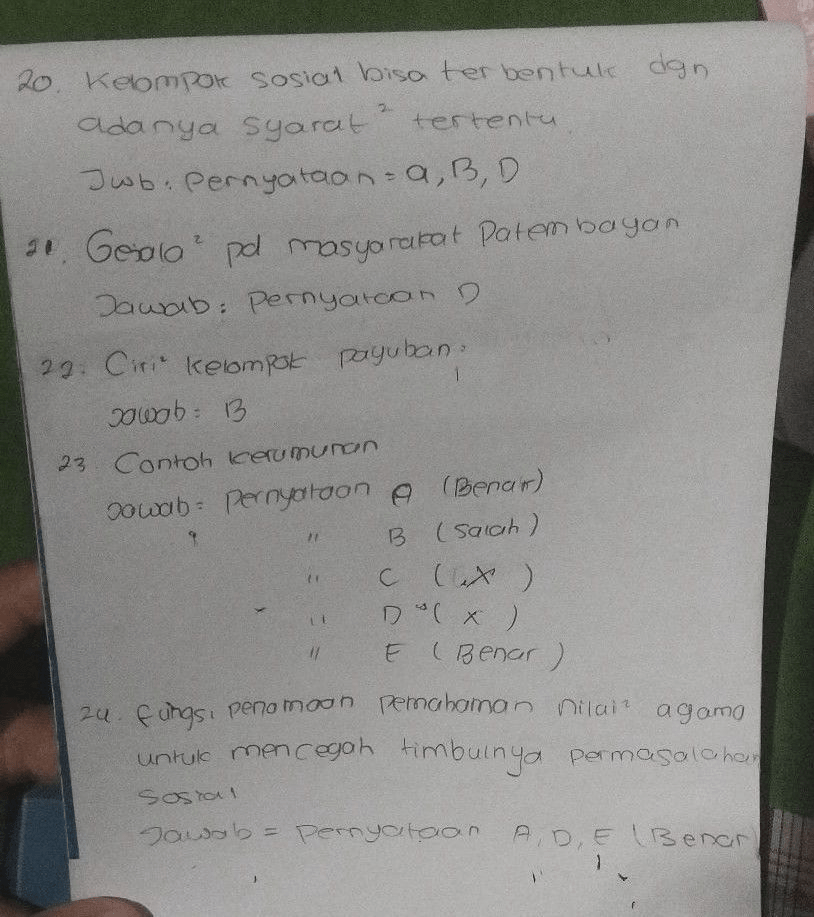 20. Kelompok sosial bisa terbentuk dgn
adanya syarat² tertentu.
Jwb: Pernyataan = a, B, D
21. Gejala² pd masyarakat Patembayan
Jawab: Pernyataan D
22. Ciri² kelompok payuban:
Jawab: B
23 Contoh kerumunan
Jawab = Pernyataan A (Benar)
" B (Salah)
" C ( X )
" D ( X )
" E ( Benar )
24. fungsi penamaan pemahaman nilai² agama
untuk mencegah timbulnya permasalahan
sosial
Jawab = Pernyataan A, D, E (Benar)